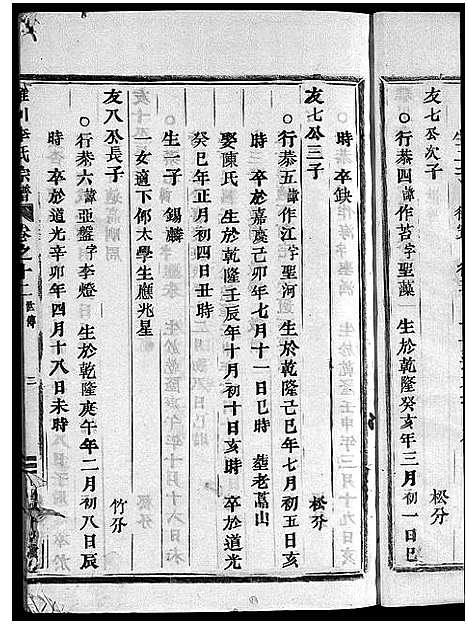 友七公次子
松芬
行恭四諱作苔字聖藻 生於乾隆癸亥年三月初一日巳
時 卒缺
友七公三子
松芬
行恭五諱作江字聖河 生於乾隆己巳年七月初五日亥
時 卒於嘉慶己卯年七月十一日巳時 塟老蒿山
娶陳氏 生於乾隆壬辰年十月初十日亥時 卒於道光
癸巳年正月初四日丑時
生一子 錫麟
一女適下邳太學生應兆星
友八公長子
竹芬
行恭六諱亞盤字李燈 生於乾隆庚午年二月初八日辰
時 卒於道光辛卯年四月十八日未時
氏宗譜 卷之十二 世傳 三